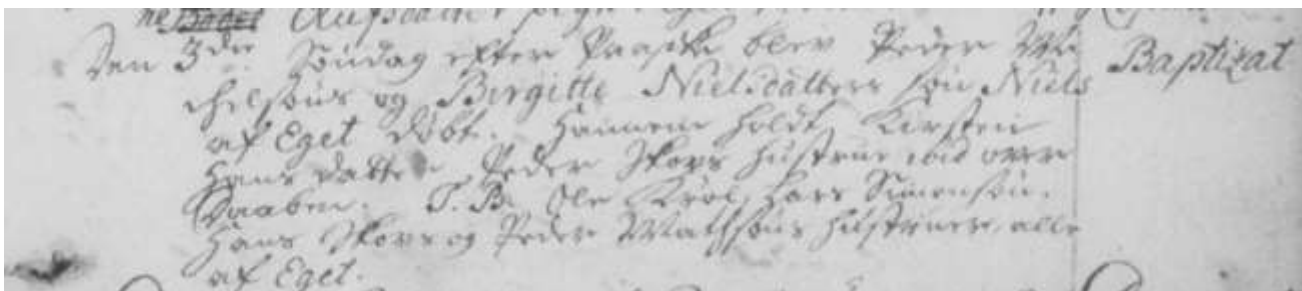 Den 3die Søndag efter Paaske blev Peder Mi Baptizat
chelsøns og Birgitte Nielsdatters søn Niels
af Eget døbt. Hannem holdt Kirsten
Hans datter Peder Skovs hustrue ved over
Daaben. T. B. Ole Krøl, Lars Simonsøn.
Hans Skovs og Peder Mathsøns hustruer, alle
af Eget.